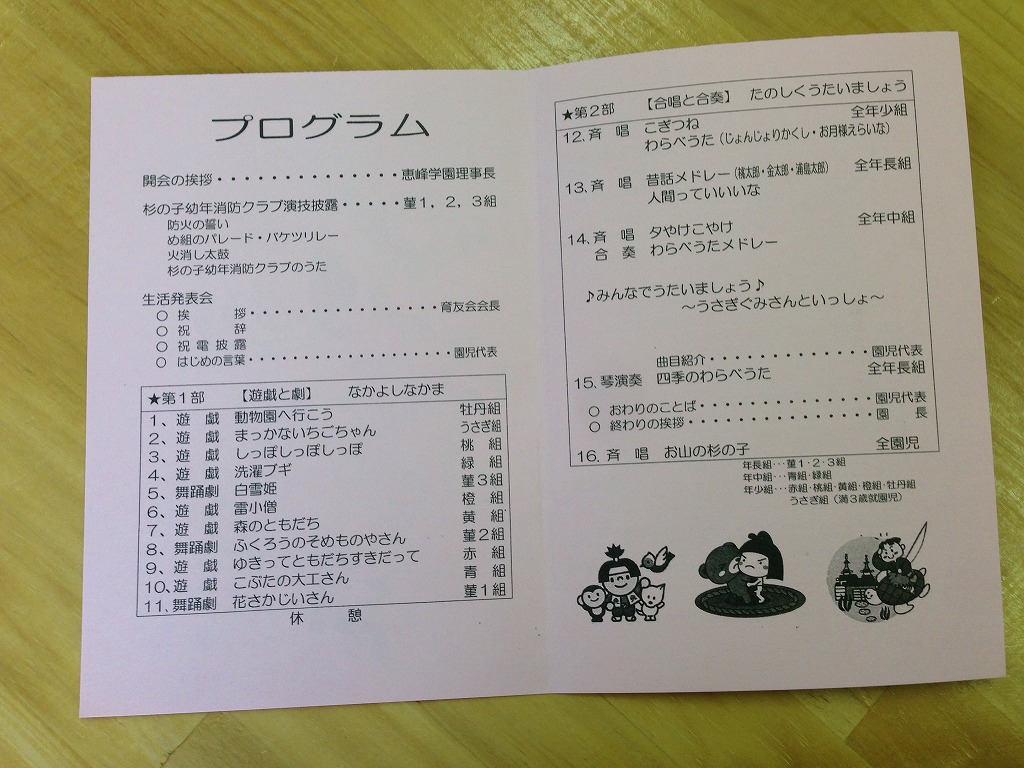 プログラム
開会の挨拶・・・・・・・・・・・・・・・恵峰学園理事長
杉の子幼年消防クラブ演技披露・・・・・菫1，2，3組
防火の誓い
め組のパレード・バケツリレー
火消し太鼓
杉の子幼年消防クラブのうた
生活発表会
○ 挨　拶・・・・・・・・・・・・・・・・・育友会会長
○ 祝　辞
○ 祝電披露
○ はじめの言葉・・・・・・・・・・・・・・・・・・園児代表
★第1部 【遊戯と劇】 なかよしなかま
1、遊　戯 動物園へ行こう 牡丹組
2、遊　戯 まっかないちごちゃん うさぎ組
3、遊　戯 しっぽしっぽしっぽ 桃　組
4、遊　戯 洗濯ブギ 緑　組
5、舞踊劇 白雪姫 菫3組
6、遊　戯 雷小僧 橙　組
7、遊　戯 森のともだち 黄　組
8、舞踊劇 ふくろうのそめものやさん 菫2組
9、遊　戯 ゆきってともだちすきだって 赤　組
10、遊　戯 こぶたの大工さん 青　組
11、舞踊劇 花さかじいさん 菫1組
休　憩
★第2部 【合唱と合奏】 たのしくうたいましょう
12、斉　唱 こぎつね 全年少組
わらべうた（じょんじょりかくし・お月様えらいな）
13、斉　唱 昔話メドレー（桃太郎・金太郎・浦島太郎） 全年長組
人間っていいいな
14、斉　唱 夕やけこやけ 全年中組
合　奏 わらべうたメドレー
♪みんなでうたいましょう♪
～うさぎぐみさんといっしょ～
曲目紹介・・・・・・・・・・・・・園児代表
15、琴演奏 四季のわらべうた 全年長組
○ おわりのことば・・・・・・・・・・・・・・園児代表
○ 終わりの挨拶・・・・・・・・・・・・・・・園　長
16、斉　唱 お山の杉の子 全園児
年長組・・・菫1・2・3組
年中組・・・青組・緑組
年少組・・・赤組・桃組・黄組・橙組・牡丹組
うさぎ組（満3歳就園児）